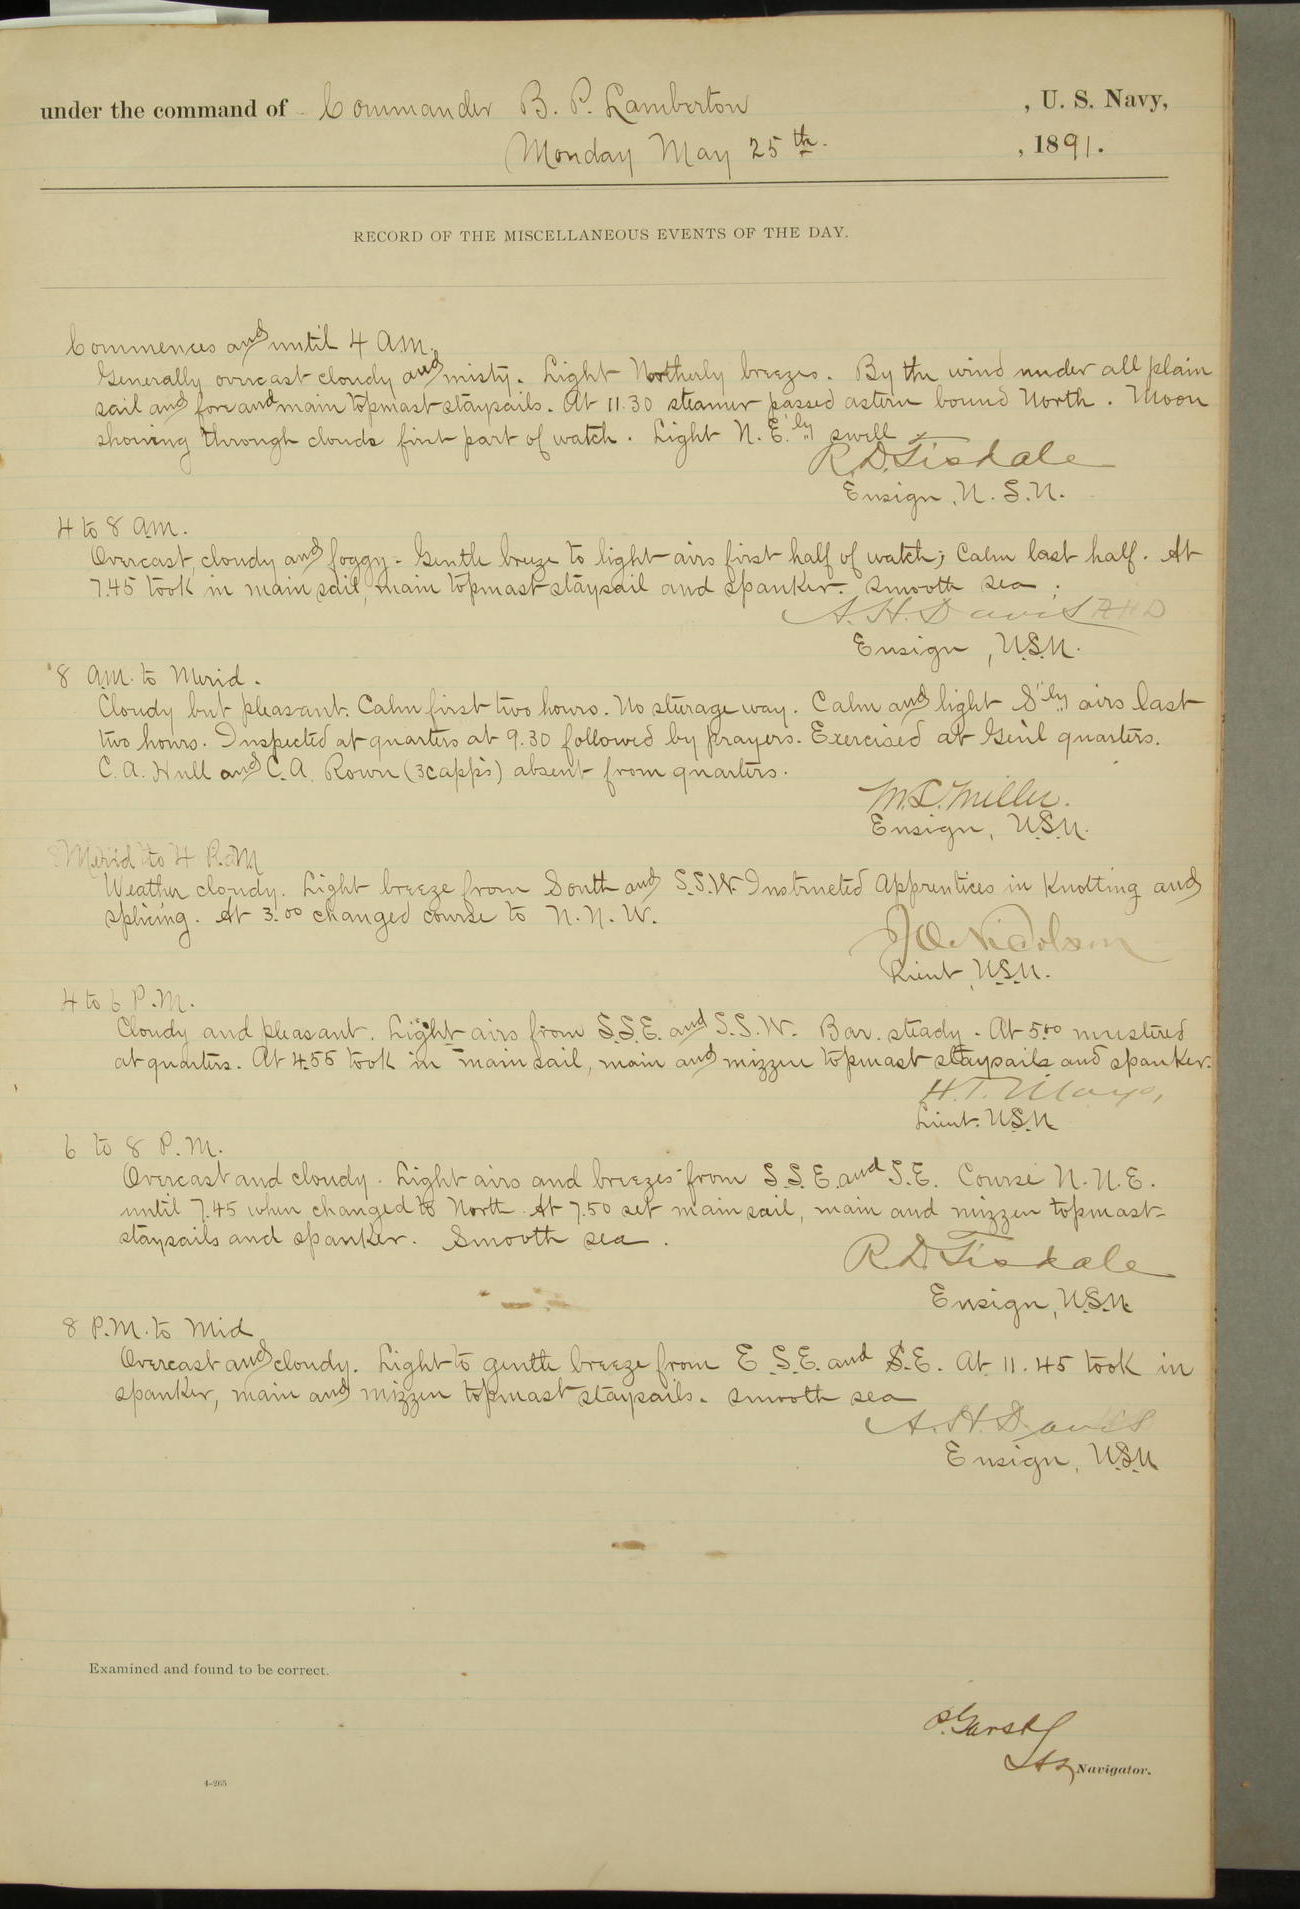 under the command of Commander B. P. Lamberton , U. S. Navy,
Monday May 25th. , 1891.
RECORD OF THE MISCELLANEOUS EVENTS OF THE DAY.
Commences and until 4 A.M.
Generally overcast cloudy and misty. Light Northerly breezes. By the wind under all plain
sail and fore and main topmast staysails. At 11.30 steamer passed astern bound North. Moon
showing through clouds first part of watch. Light N.E.'ly swell
R.D. Tisdale
Ensign, U.S.N.
4 to 8 A.M.
Overcast, cloudy and foggy. Gentle breeze to light airs first half of watch; Calm last half. At
7.45 took in main sail, main topmast staysail and spanker. Smooth sea.
A. H. Davis AHD
Ensign, U.S.N.
8 A.M. to Merid.
Cloudy but pleasant. Calm first two hours. No steerage way. Calm and light S'ly airs last
two hours. Inspected at quarters at 9.30 followed by prayers. Exercised at Gen'l quarters.
C. A. Hull and C. A. (3c app's) absent from quarters.
M.L. Miller.
Ensign, U.S.N.
Merid to 4 P.M
Weather cloudy. Light breeze from South and S.S.W. Instructed Apprentices in Knotting and
splicing. At 3.00 changed course to N.N.W.
J O Nicholson
Lieut, U.S.N.
4 to 6 P.M.
Cloudy and pleasant. Light airs from S.S.E. and S.S.W. Bar. steady. At 5.00 mustered
at quarters. At 4.55 took in main sail, main and mizzen topmast staysails and spanker.
H.T. Mayo,
Lieut. U.S.N
6 to 8 P.M.
Overcast and cloudy. Light airs and breezes from S.S.E. and S.E. Course N.N.E.
until 7.45 when changed to North. At 7.50 set main sail, main and mizzen topmast
staysails and spanker. Smooth sea.
R.D. Tisdale
Ensign, U.S.N.
8 P.M. to Mid
Overcast and cloudy. Light to gentle breeze from E.S.E. and S.E. At 11.45 took in
spanker, main and mizzen topmast staysails. Smooth sea
A. H. Davis
Ensign, U.S.N
Examined and found to be correct.
P. Garst
Navigator.
4-265